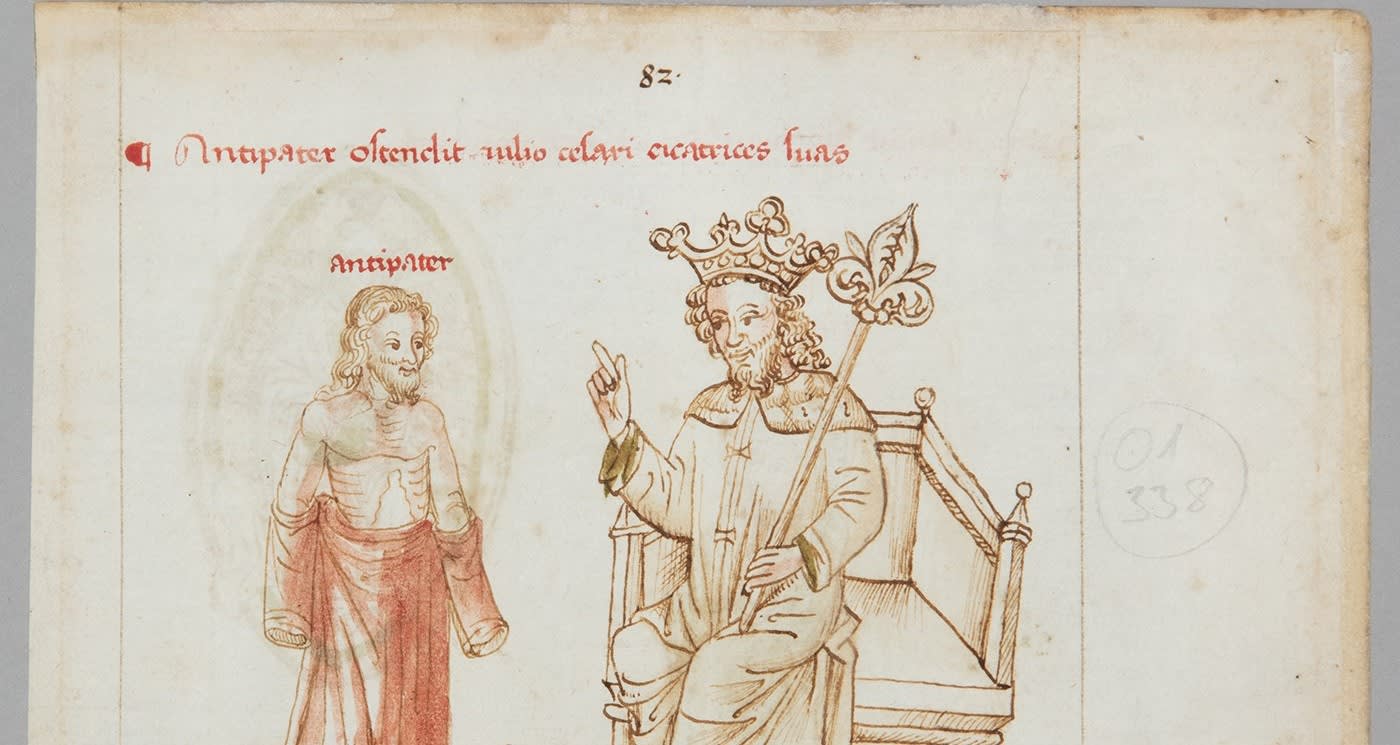 82.
¶ Antipater ostendit iulio cesari cicatrices suas
antipater
01
338